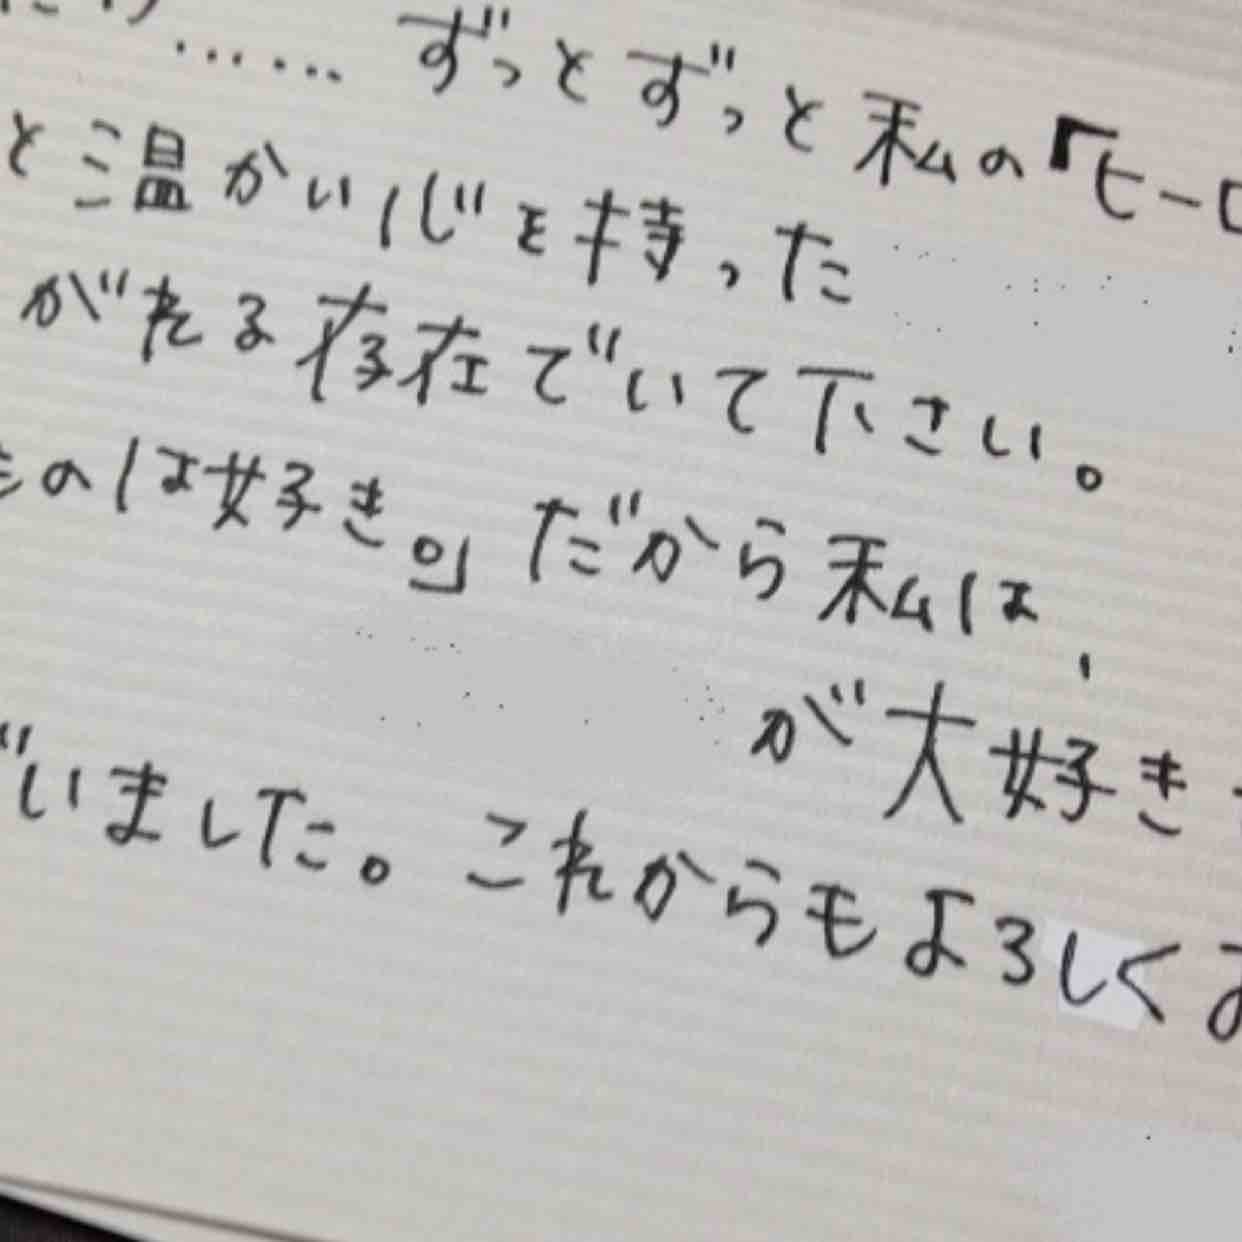 ……ずっとずっと私の「ヒーロ
と温かい心を持った
がれる存在でいて下さい。
ものは好き。」だから私は、
が大好き
いました。これからもよろしくお